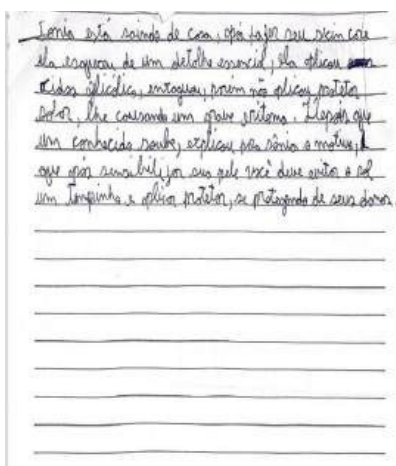 Sonia está saindo de casa, após fazer seu skin care
ela esqueceu de um detalhe essencial, ela aplicou
ácido glicólico, enxaguou, porém não aplicou protetor
solar, lhe causando um grave eritema. Depois que
um conhecido soube, explicou pra sônia o motivo,
que após sensibilizar sua pele você deve evitar o sol
um tempinho e aplicar protetor, se protegendo de seus danos.